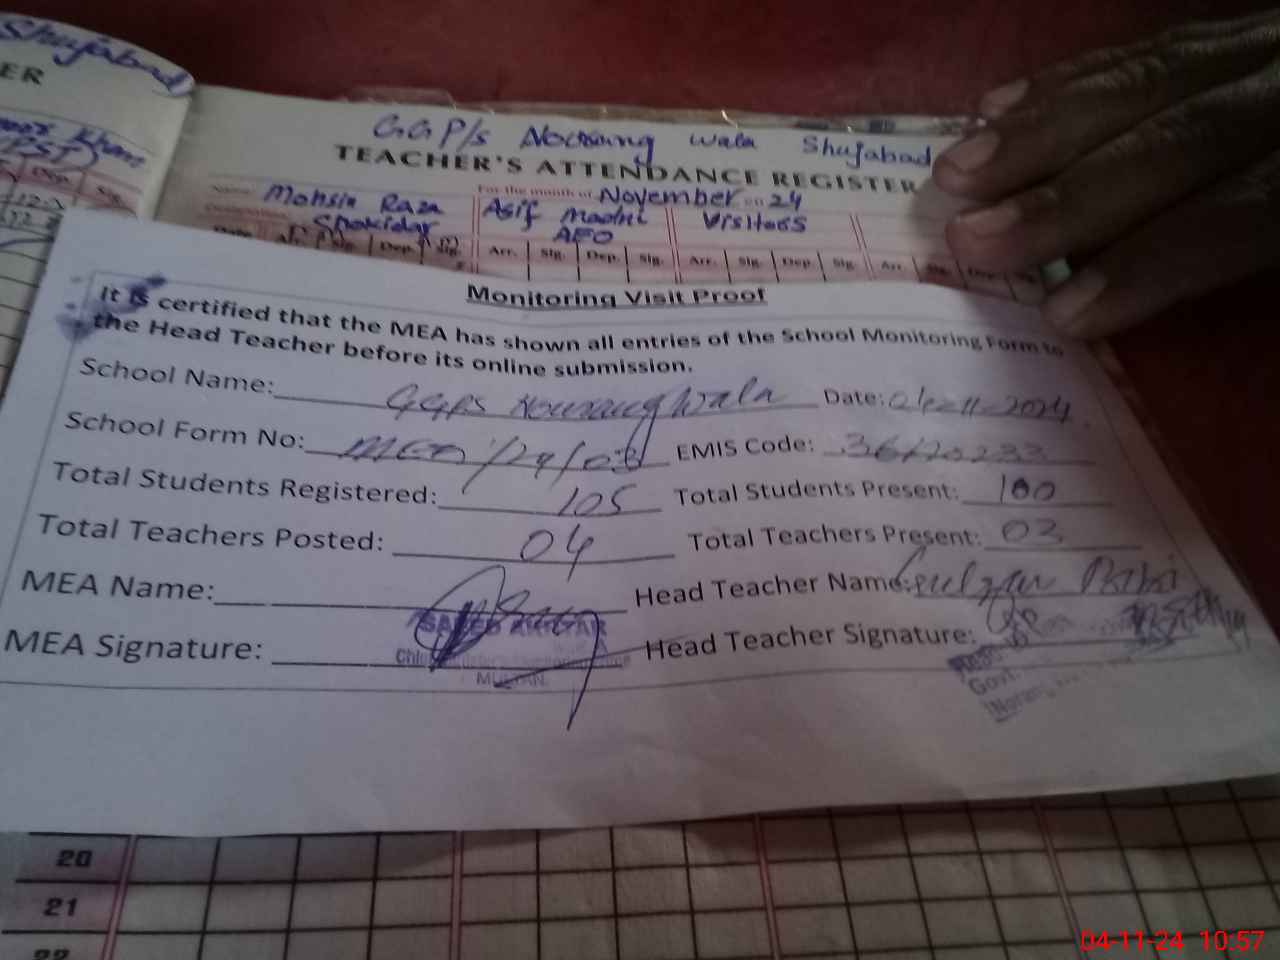 Shujabad
ER
Khan
(PST)
Dep. Sig.
GGP/s Nourang wala Shujabad
TEACHER'S ATTENDANCE REGISTER
Name Mohsin Raza For the month of November 24
Asif Madni Visitors
AEO
Arr. Sig. Dep. Sig. Arr. Sig. Dep. Sig. Arr. Sig. Dep. Sig. Arr. Sig. Dep.
Monitoring Visit Proof
It is certified that the MEA has shown all entries of the School Monitoring Form to
the Head Teacher before its online submission.
School Name: GGPS Nourang Wala Date: 04-11-2024
School Form No: EMIS Code: 36120233
Total Students Registered: 105 Total Students Present: 100
Total Teachers Posted: 04 Total Teachers Present: 03
MEA Name: Head Teacher Name: Gulzar Bibi
SAEED AKHTAR
MEA Signature: Head Teacher Signature:
MULTAN.
Govt.
20
21
22
04-11-24 10:57